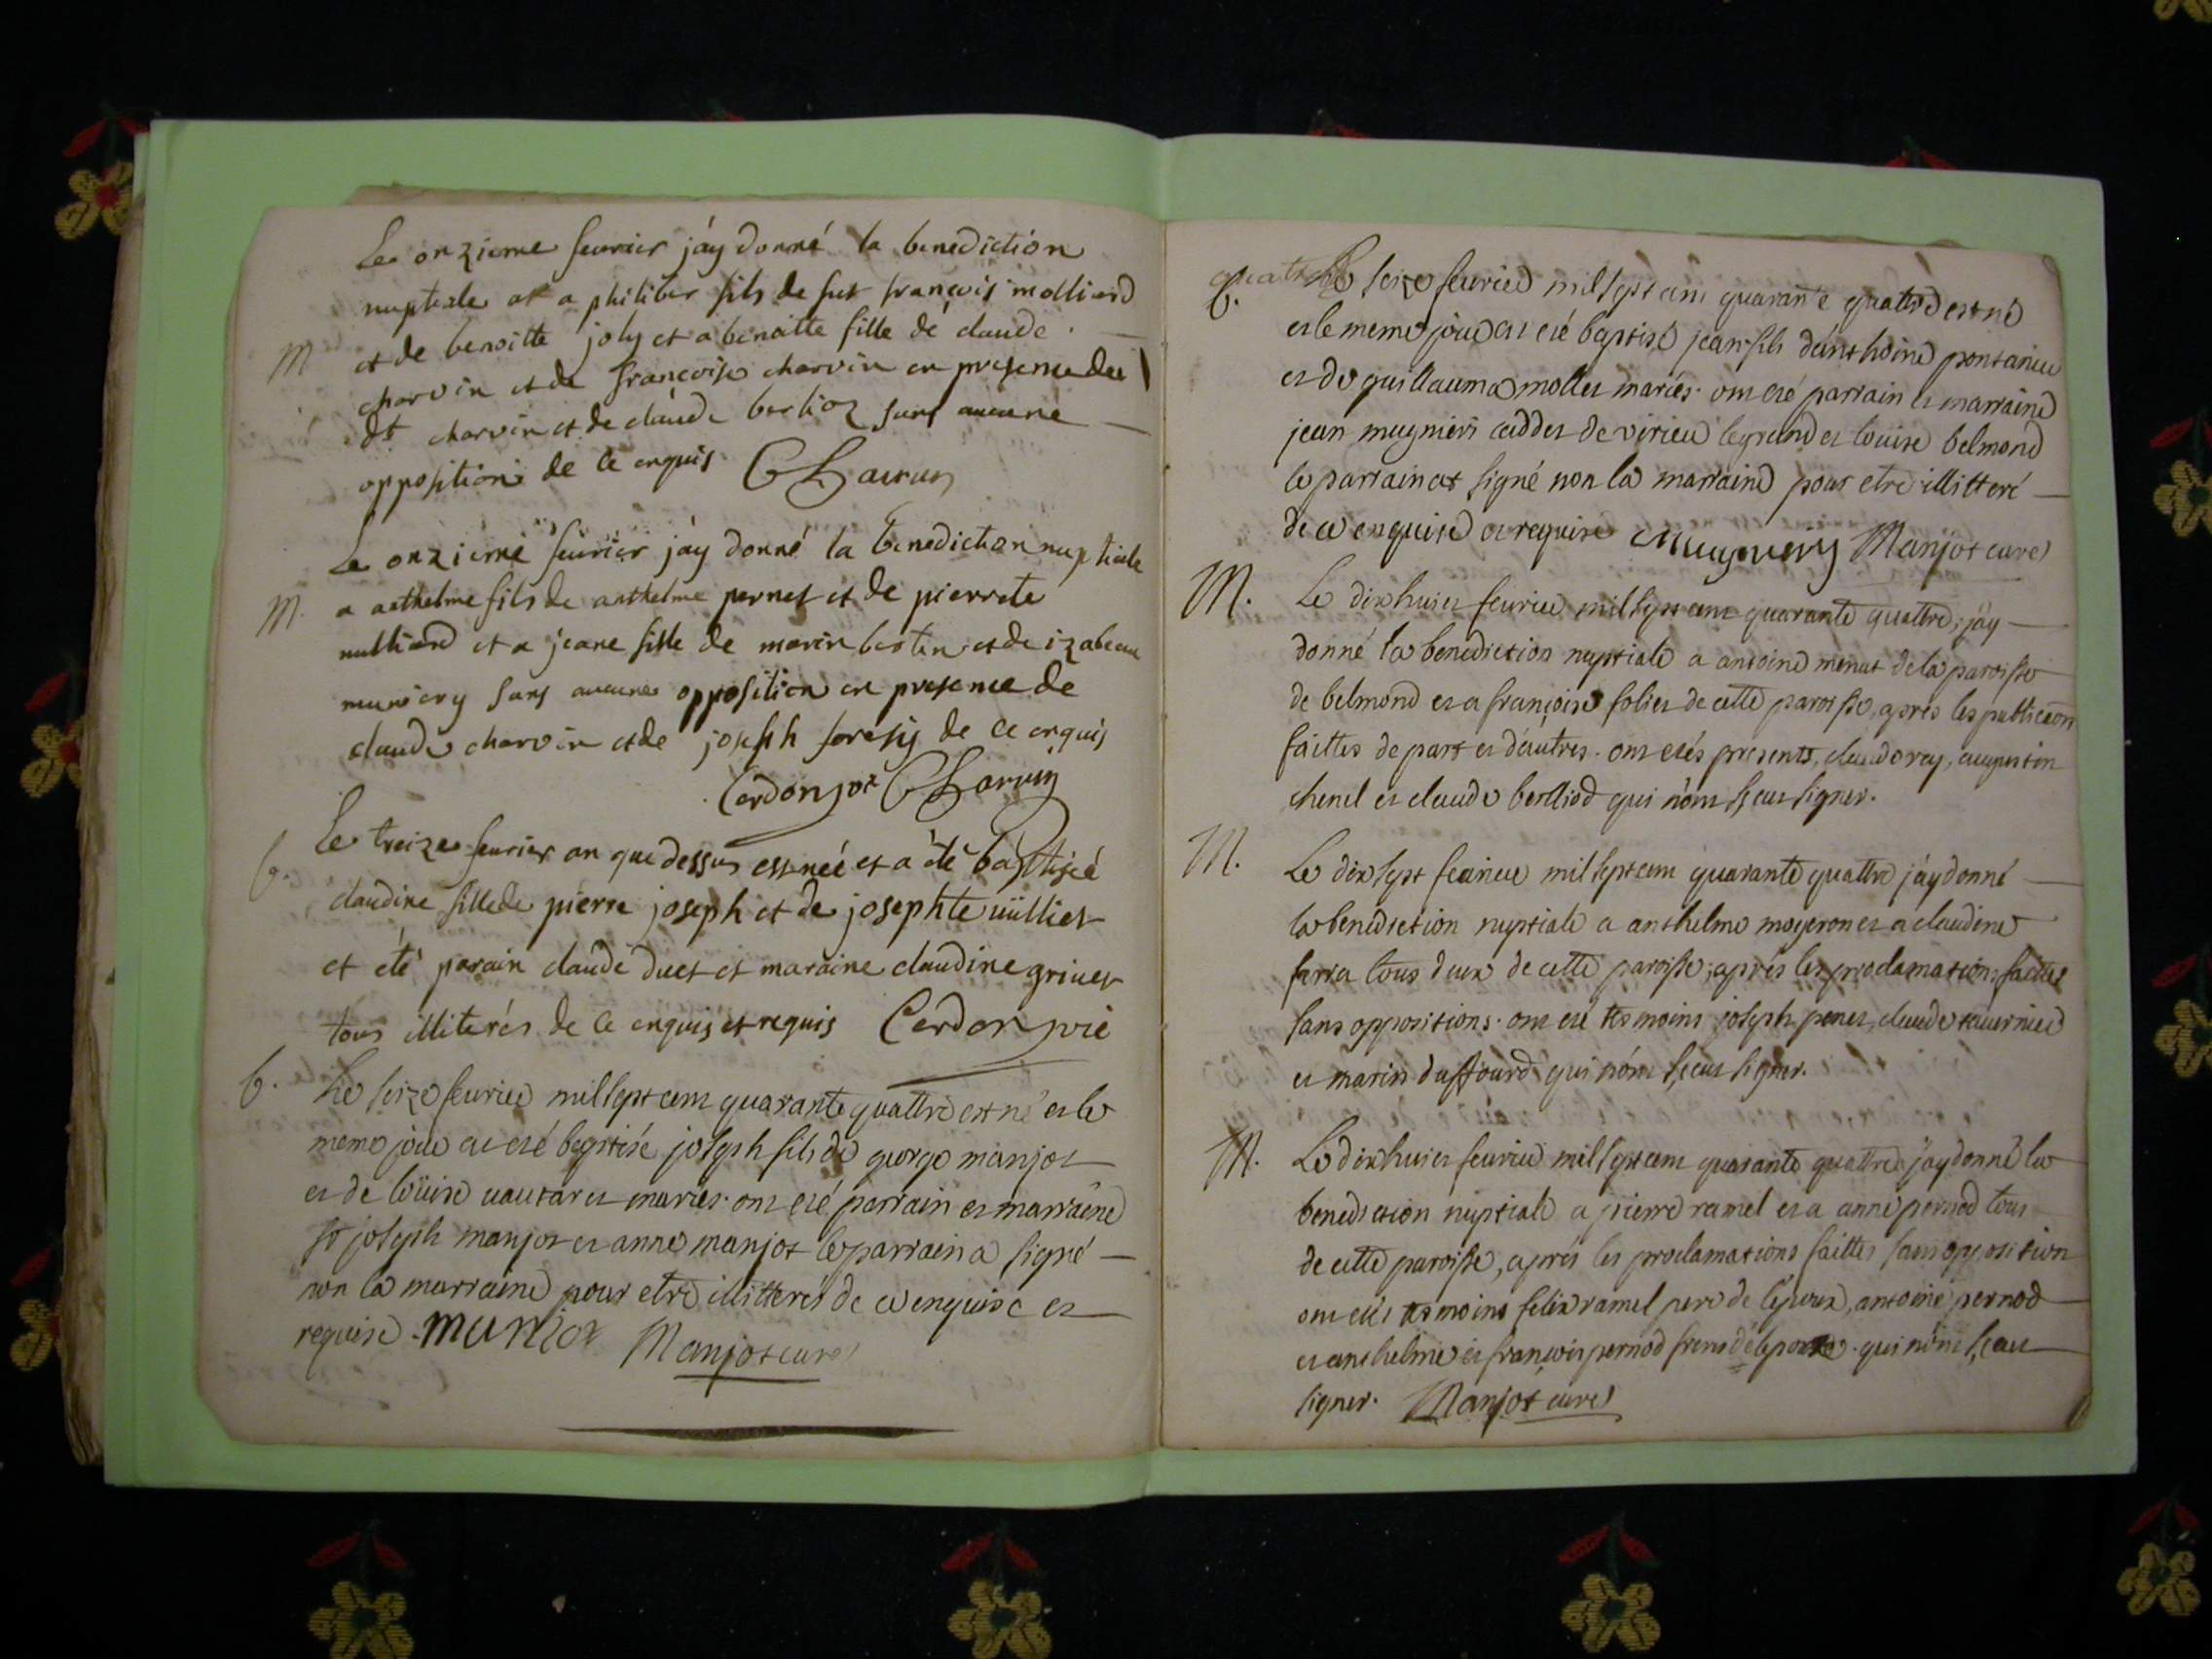 Le onzieme feurier j'ay donné la benediction
nuptiale et a philiber fils de feu françois molliard
M et de benoitte joly et a benoitte fille de claude
charvin et de françoise charvin en presence du
dt charvin et de claude berlioz sans aucune
opposition de ce enquis C Charvin
Le onzieme feurier j'ay donné la benediction nuptiale
M. a anthelme fils de anthelme pernet et de pierrete
mulliard et a jeane fille de marin bertin et de izabeau
sans aucune opposition en presence de
claude charvin et de joseph de ce enquis
Cerdon C Charvin
b. Le treize feurier an que dessus est neé et a été baptiseé
claudine fille de pierre joseph et de josephte uülliet
et été parain claude duet et maraine claudine griuet
tous illiterés de ce enquis et requis Cerdon vic
b. Le seize feurier mil sept cent quarante quattre est né et le
meme jour at eté baptisé joseph fils de george manjot
et de loüise mariés. ont eté parrain et marraine
sr joseph manjot et anne manjot le parrain a signé
non la marraine pour etre illitterés de ce enquise et
requise. Manjot Manjot curé
quatre
b. Le seize feurier mil sept cent quarante quattre est né
et le meme jour at eté baptisé jean fils d'anthoine pontanier
et de guillauma mollet mariés. ont eté parrain et marraine
jean mugnieri caddet de virieu le grand et louise belmond
le parrain at signé non la marraine pour etre illitteré
de ce enquise et requise Mugniery Manjot curé
M. Le dix huict feurier mil sept cent quarante quattre, j'ay
donné la benediction nuptiale a antoine menat de la paroisse
de belmond et a françoise folliet de cette paroisse, apres les publicaons
faittes de part et d'autres. ont etés presents, claude rey, augustin
chenel et claude berlliod qui n'ont sçeut signer.
M. Le dix sept feurier mil sept cent quarante quattre j'ay donné
la benediction nuptiale a anthelme mogeron et a claudine
ferra tous deux de cette paroisse, apres les proclamations faittes
sans oppositions. ont eté tesmoins joseph penet, claude tauernier
et marin duffourd qui n'ont sçeut signer.
M. Le dix huict feurier mil sept cent quarante quattre j'ay donné la
benediction nuptiale a pierre ramel et a anne pernod tous
de cette paroisse, apres les proclamations faittes sans opposition
ont etés tesmoins felix ramel pere de l'epoux, antoine pernod
et anthelme et françois pernod freres de l'epouse. qui n'ont sçeut
signer. Manjot curé